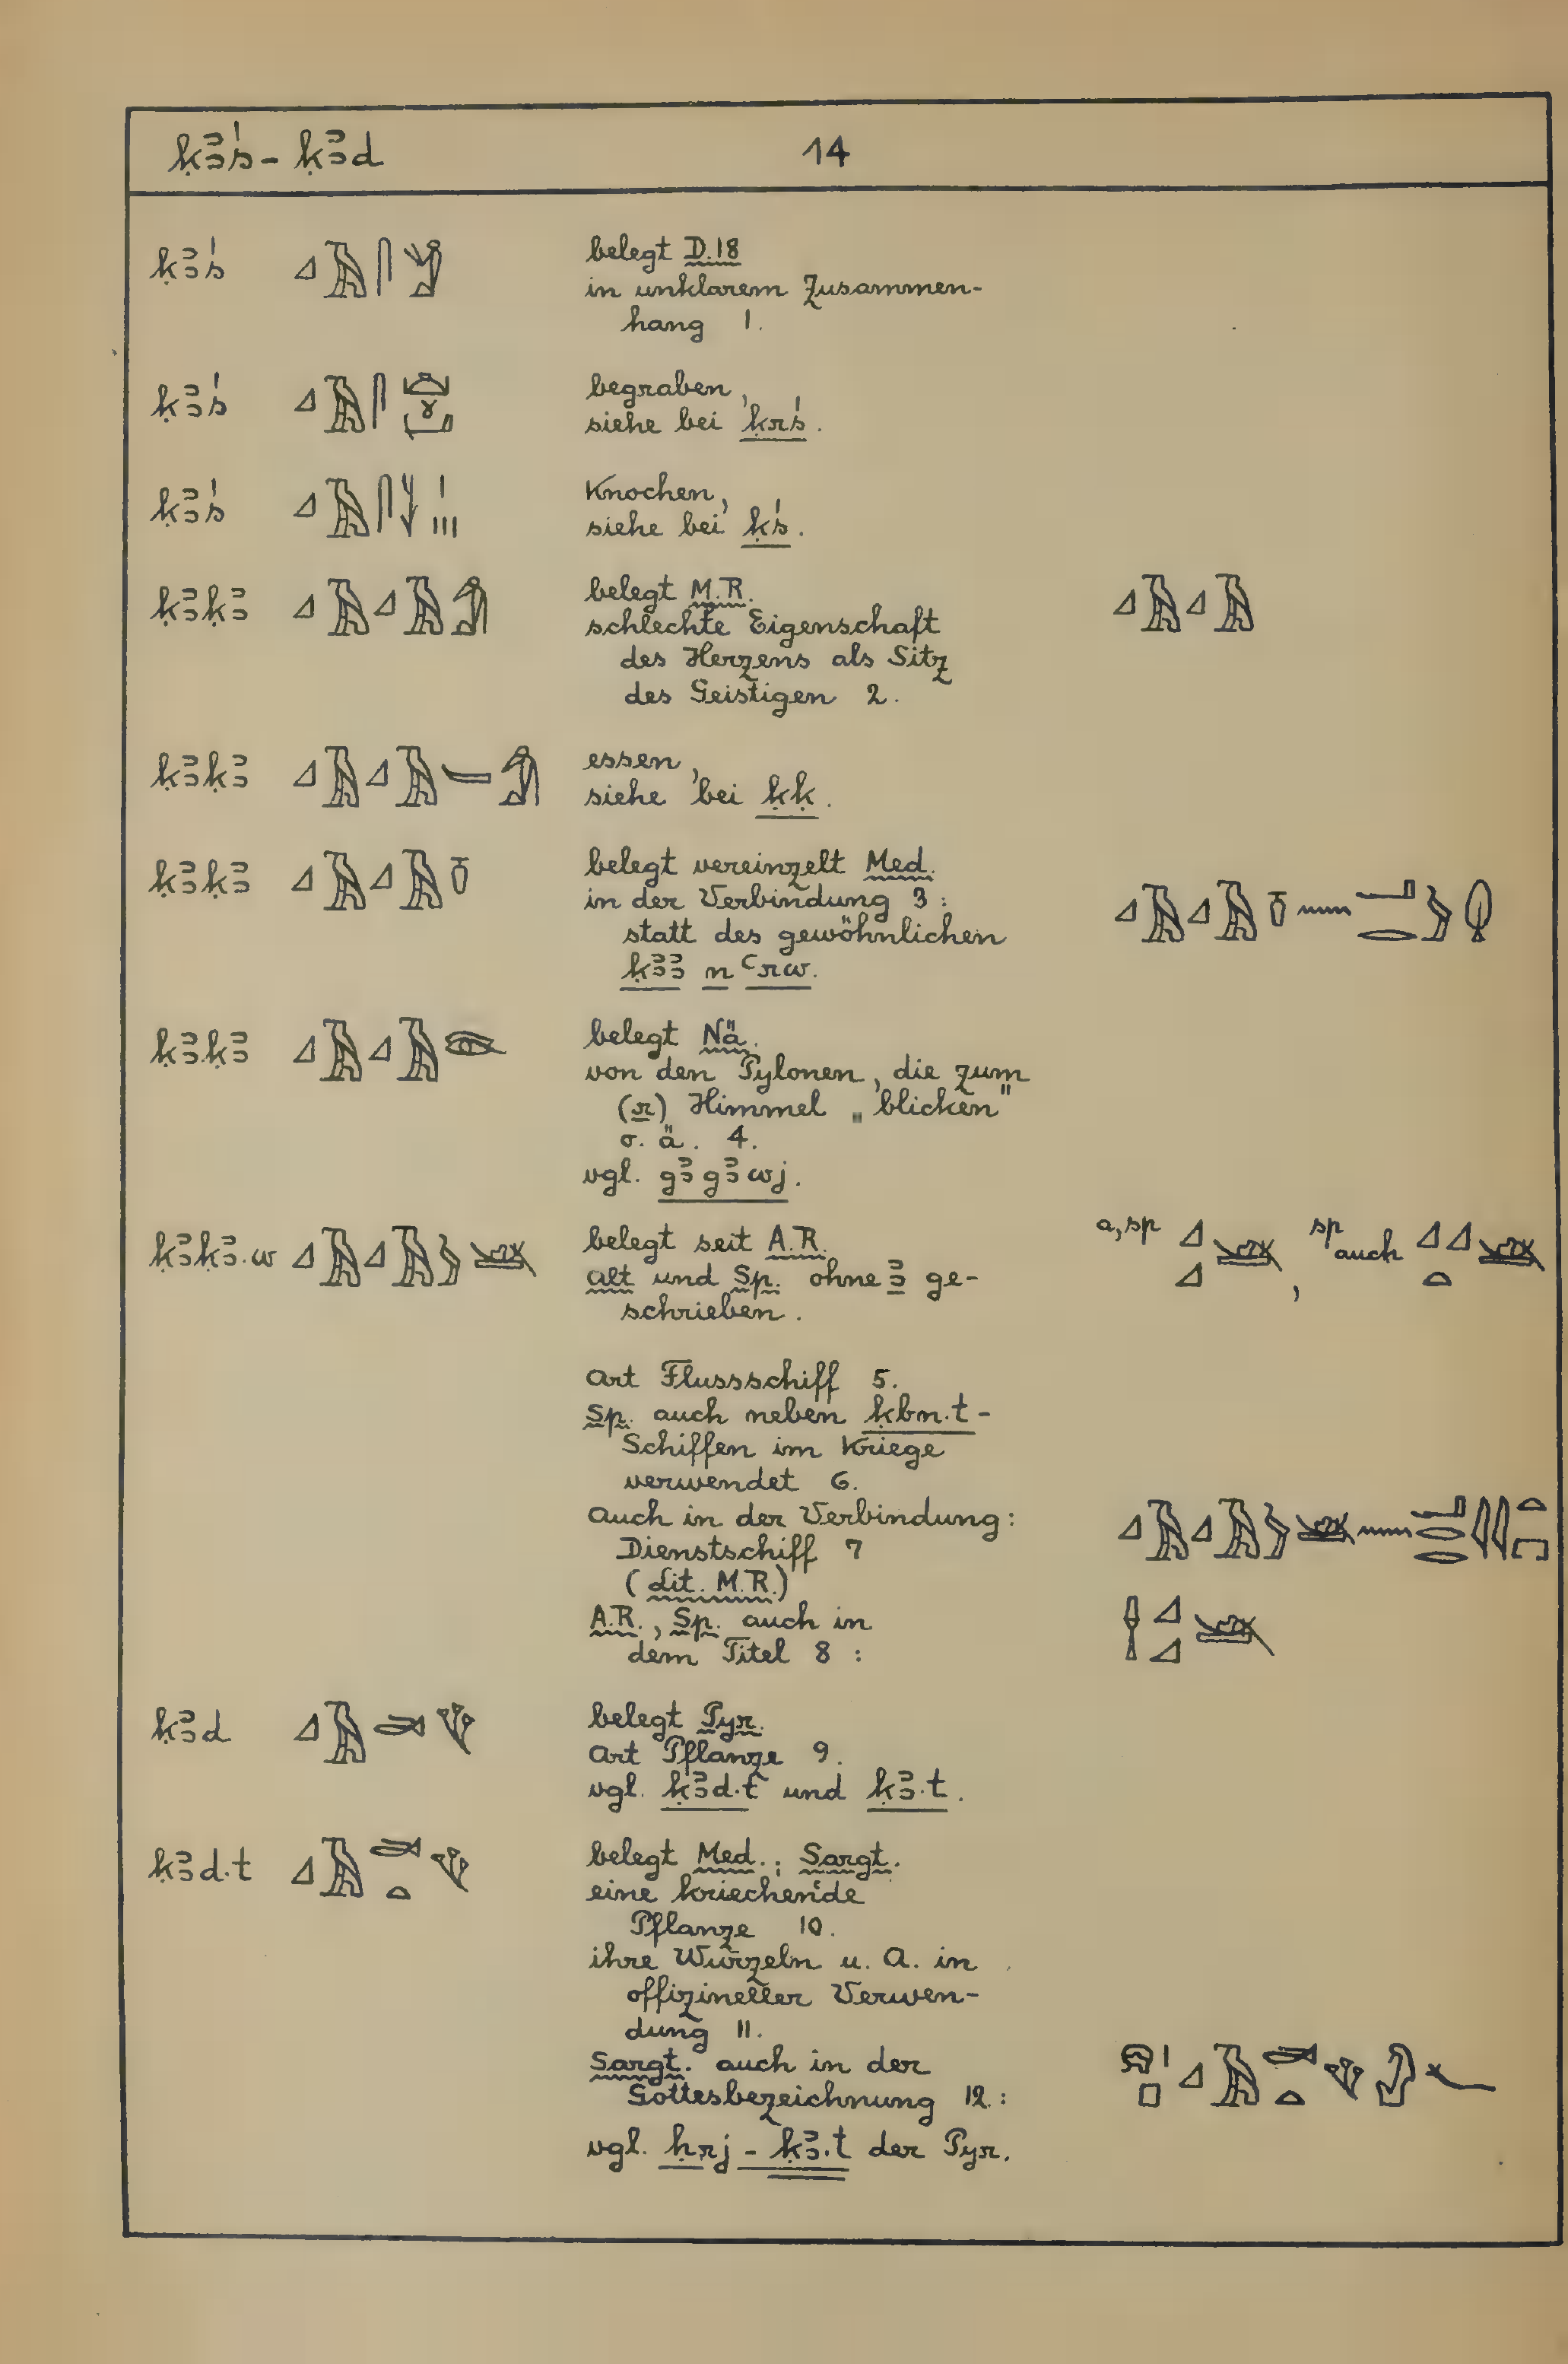 ḳꜣś - ḳꜣd 14
ḳꜣś 𓈎𓄿𓋴𓀁 belegt D.18
in unklarem Zusammen-
hang 1.
ḳꜣś 𓈎𓄿𓋴 begraben,
siehe bei ḳrś.
ḳꜣś 𓈎𓄿𓋴 Knochen,
siehe bei ḳś.
ḳꜣḳꜣ 𓈎𓄿𓈎𓄿𓀁 belegt M.R. 𓈎𓄿𓈎𓄿
schlechte Eigenschaft
des Herzens als Sitz
des Geistigen 2.
ḳꜣḳꜣ 𓈎𓄿𓈎𓄿𓀁 essen,
siehe bei ḳḳ.
ḳꜣḳꜣ 𓈎𓄿𓈎𓄿𓏊 belegt vereinzelt Med.
in der Verbindung 3: 𓈎𓄿𓈎𓄿𓏊𓈖𓂝𓂋𓅱𓆭
statt des gewöhnlichen
ḳꜣꜣ n ꜥrw.
ḳꜣḳꜣ 𓈎𓄿𓈎𓄿𓁹 belegt Nä.
von den Pylonen, die zum
(r) Himmel „blicken"
o. ä. 4.
vgl. gꜣgꜣwj.
ḳꜣḳꜣ.w 𓈎𓄿𓈎𓄿𓅱 belegt seit A.R. a, sp 𓈎𓈎, sp auch 𓈎𓈎𓏏
alt und Sp. ohne ꜣ ge-
schrieben.
Art Flussschiff 5.
Sp. auch neben ḳbn.t-
Schiffen im Kriege
verwendet 6.
auch in der Verbindung: 𓈎𓄿𓈎𓄿𓅱
Dienstschiff 7
(Lit. M.R.)
A.R., Sp. auch in
dem Titel 8: 𓌂𓈎𓈎
ḳꜣd 𓈎𓄿𓂧𓆰 belegt Pyr.
Art Pflanze 9.
vgl. ḳꜣd.t und ḳꜣ.t.
ḳꜣd.t 𓈎𓄿𓂧𓏏𓆰 belegt Med.; Sargt.
eine kriechende
Pflanze 10.
ihre Wurzeln u. A. in
offizineller Verwen-
dung 11.
Sargt. auch in der
Gottesbezeichnung 12: 𓁶𓏤𓊪𓈎𓄿𓂧𓏏𓆰
vgl. ḥrj - ḳꜣ.t der Pyr.